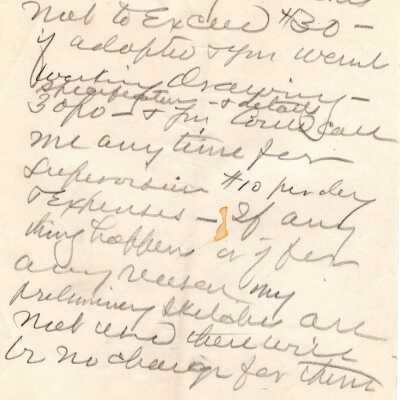 not to Exceed $30 –
if adopted & you want
working Drawing –
specifications & details
30% – & you could call
me any time for
supervision $10 per day
& Expenses – If any
thing happens or if for
any reason my
preliminary sketches are
not used there will
be no charge for them